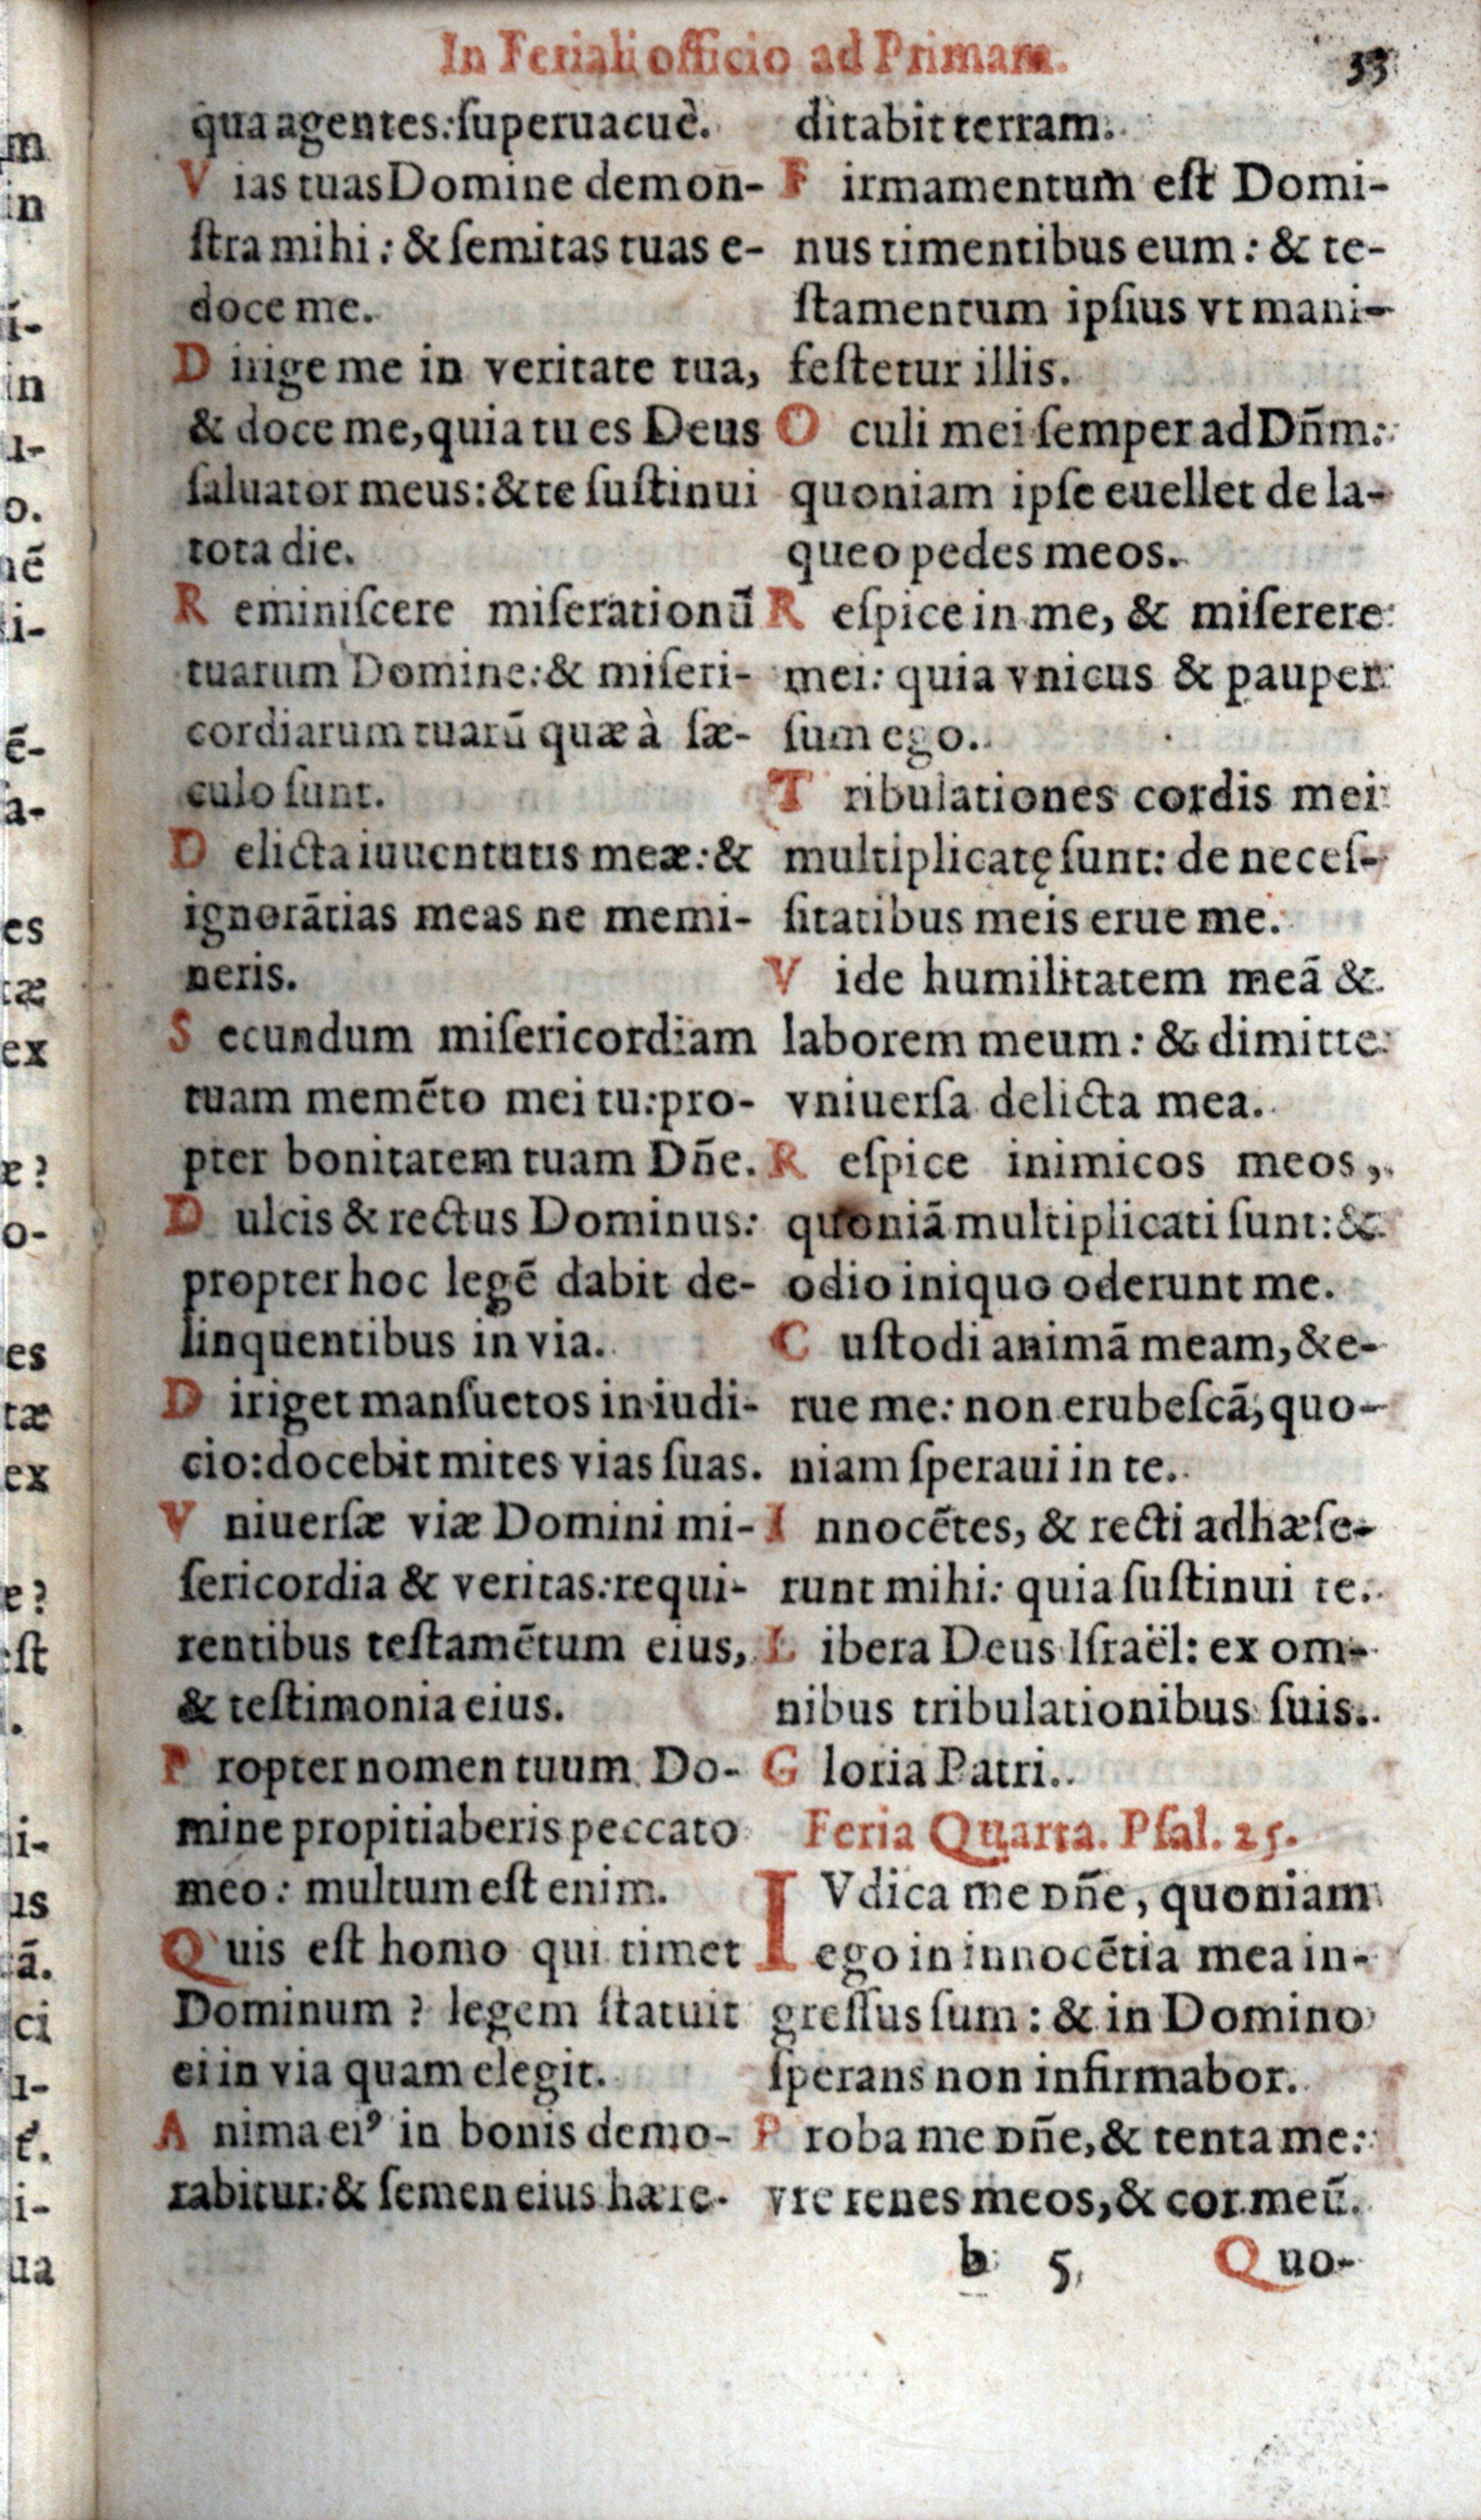 In Feriali officio ad Primam.
33
qua agentes: ſuperuacuè.
V ias tuas Domine demon-
ſtra mihi: & ſemitas tuas e-
doce me.
D irige me in veritate tua,
& doce me, quia tu es Deus
ſaluator meus: & te ſuſtinui
tota die.
R eminiſcere miſerationū
tuarum Domine: & miſeri-
cordiarum tuarū quæ à ſæ-
culo ſunt.
D elicta iuuentutis meæ: &
ignorātias meas ne memi-
neris.
S ecundum miſericordiam
tuam memēto mei tu: pro-
pter bonitatem tuam Dn̄e.
D ulcis & rectus Dominus:
propter hoc legē dabit de-
linquentibus in via.
D iriget manſuetos in iudi-
cio: docebit mites vias ſuas.
V niuerſæ viæ Domini mi-
ſericordia & veritas: requi-
rentibus teſtamētum eius,
& teſtimonia eius.
P ropter nomen tuum Do-
mine propitiaberis peccato
meo: multum eſt enim.
Q uis eſt homo qui timet
Dominum? legem ſtatuit
ei in via quam elegit.
A nima eiꝰ in bonis demo-
rabitur: & ſemen eius hære-
ditabit terram.
F irmamentum eſt Domi-
nus timentibus eum: & te-
ſtamentum ipſius vt mani-
feſtetur illis.
O culi mei ſemper ad Dn̄m:
quoniam ipſe euellet de la-
queo pedes meos.
R eſpice in me, & miſerere
mei: quia vnicus & pauper
ſum ego.
T ribulationes cordis mei
multiplicatę ſunt: de neceſ-
ſitatibus meis erue me.
V ide humilitatem meā &
laborem meum: & dimitte
vniuerſa delicta mea.
R eſpice inimicos meos,
quoniā multiplicati ſunt: &
odio iniquo oderunt me.
C uſtodi animā meam, & e-
rue me: non erubeſcā, quo-
niam ſperaui in te.
I nnocētes, & recti adhæſe-
runt mihi: quia ſuſtinui te.
L ibera Deus Iſraël: ex om-
nibus tribulationibus ſuis.
G loria Patri.
Feria Quarta. Pſal. 25.
I Vdica me Dn̄e, quoniam
ego in innocētia mea in-
greſſus ſum: & in Domino
ſperans non infirmabor.
P roba me Dn̄e, & tenta me:
vre renes meos, & cor meū.
b 5 Quo-